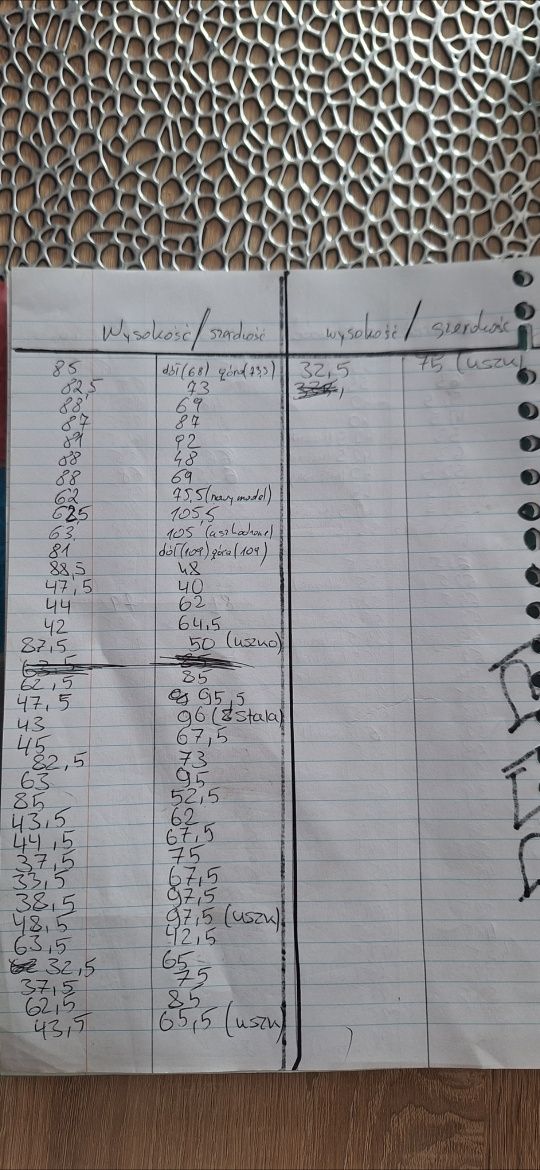 Wysokość / szerokość
wysokość / szerokość
85 dół (68) góra (73,5)
82,5 73
88 69
87 87
89 92
88 48
88 69
62 75,5 (nowy model)
62,5 105,5
63 105 (uszkodzone)
81 dół (109) góra (109)
88,5 48
47,5 40
44 62
42 64,5
87,5 50 (uszko)
62,5 85
47,5 95,5
43 96 (Stala)
45 67,5
82,5 73
63 95
85 52,5
43,5 62
44,5 67,5
37,5 75
33,5 67,5
38,5 97,5
48,5 97,5 (uszk)
63,5 42,5
32,5 65
37,5 75
62,5 85
43,5 65,5 (uszk)
32,5 75 (uszk)